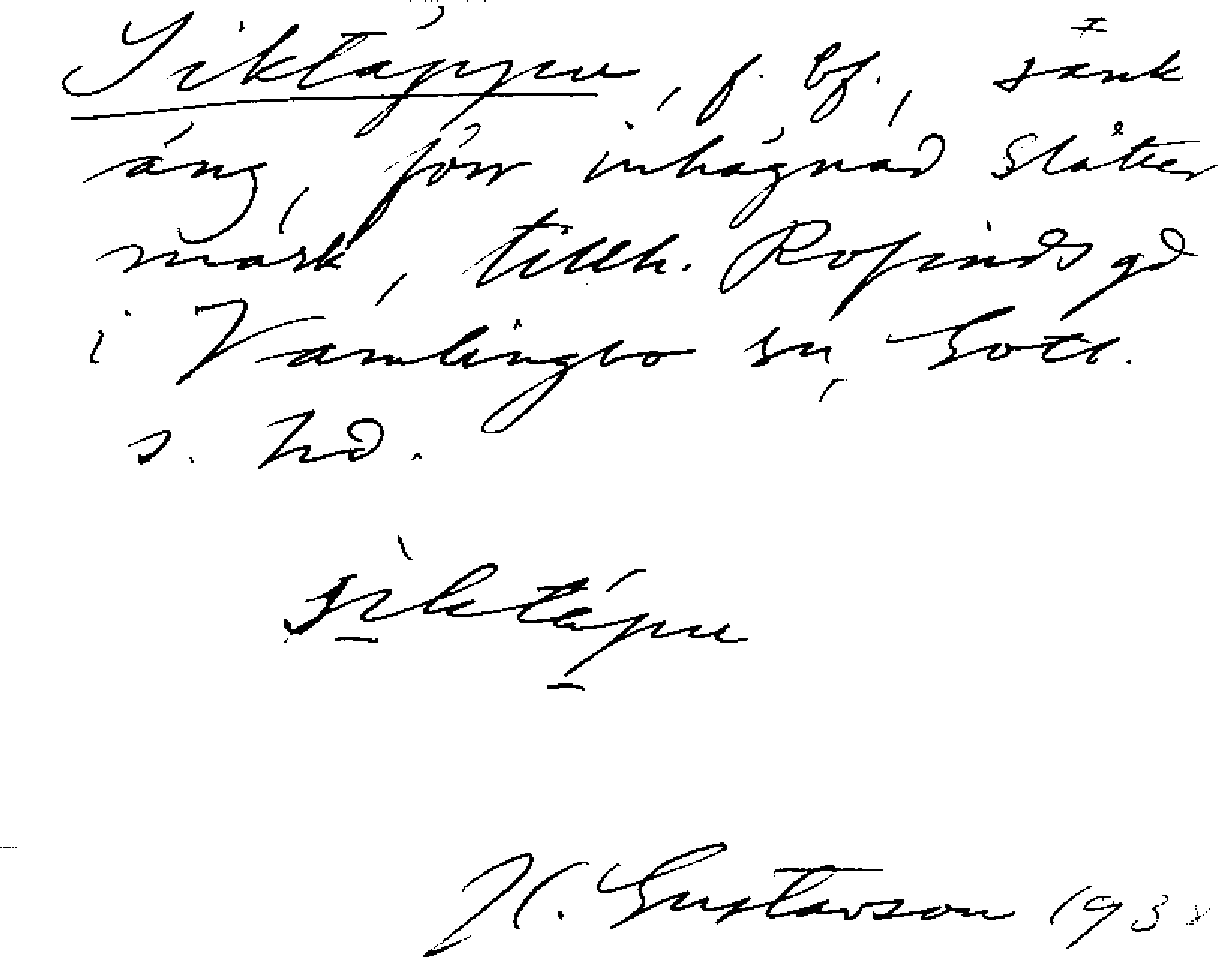 Siktäppu, f. bf., sänk
äng, förr inhägnad slåtter
mark, tillh. Rofinds gd
i Vamlingbo sn, Gotl.
s. hd.
siktäpu
H. Gustavson 1938